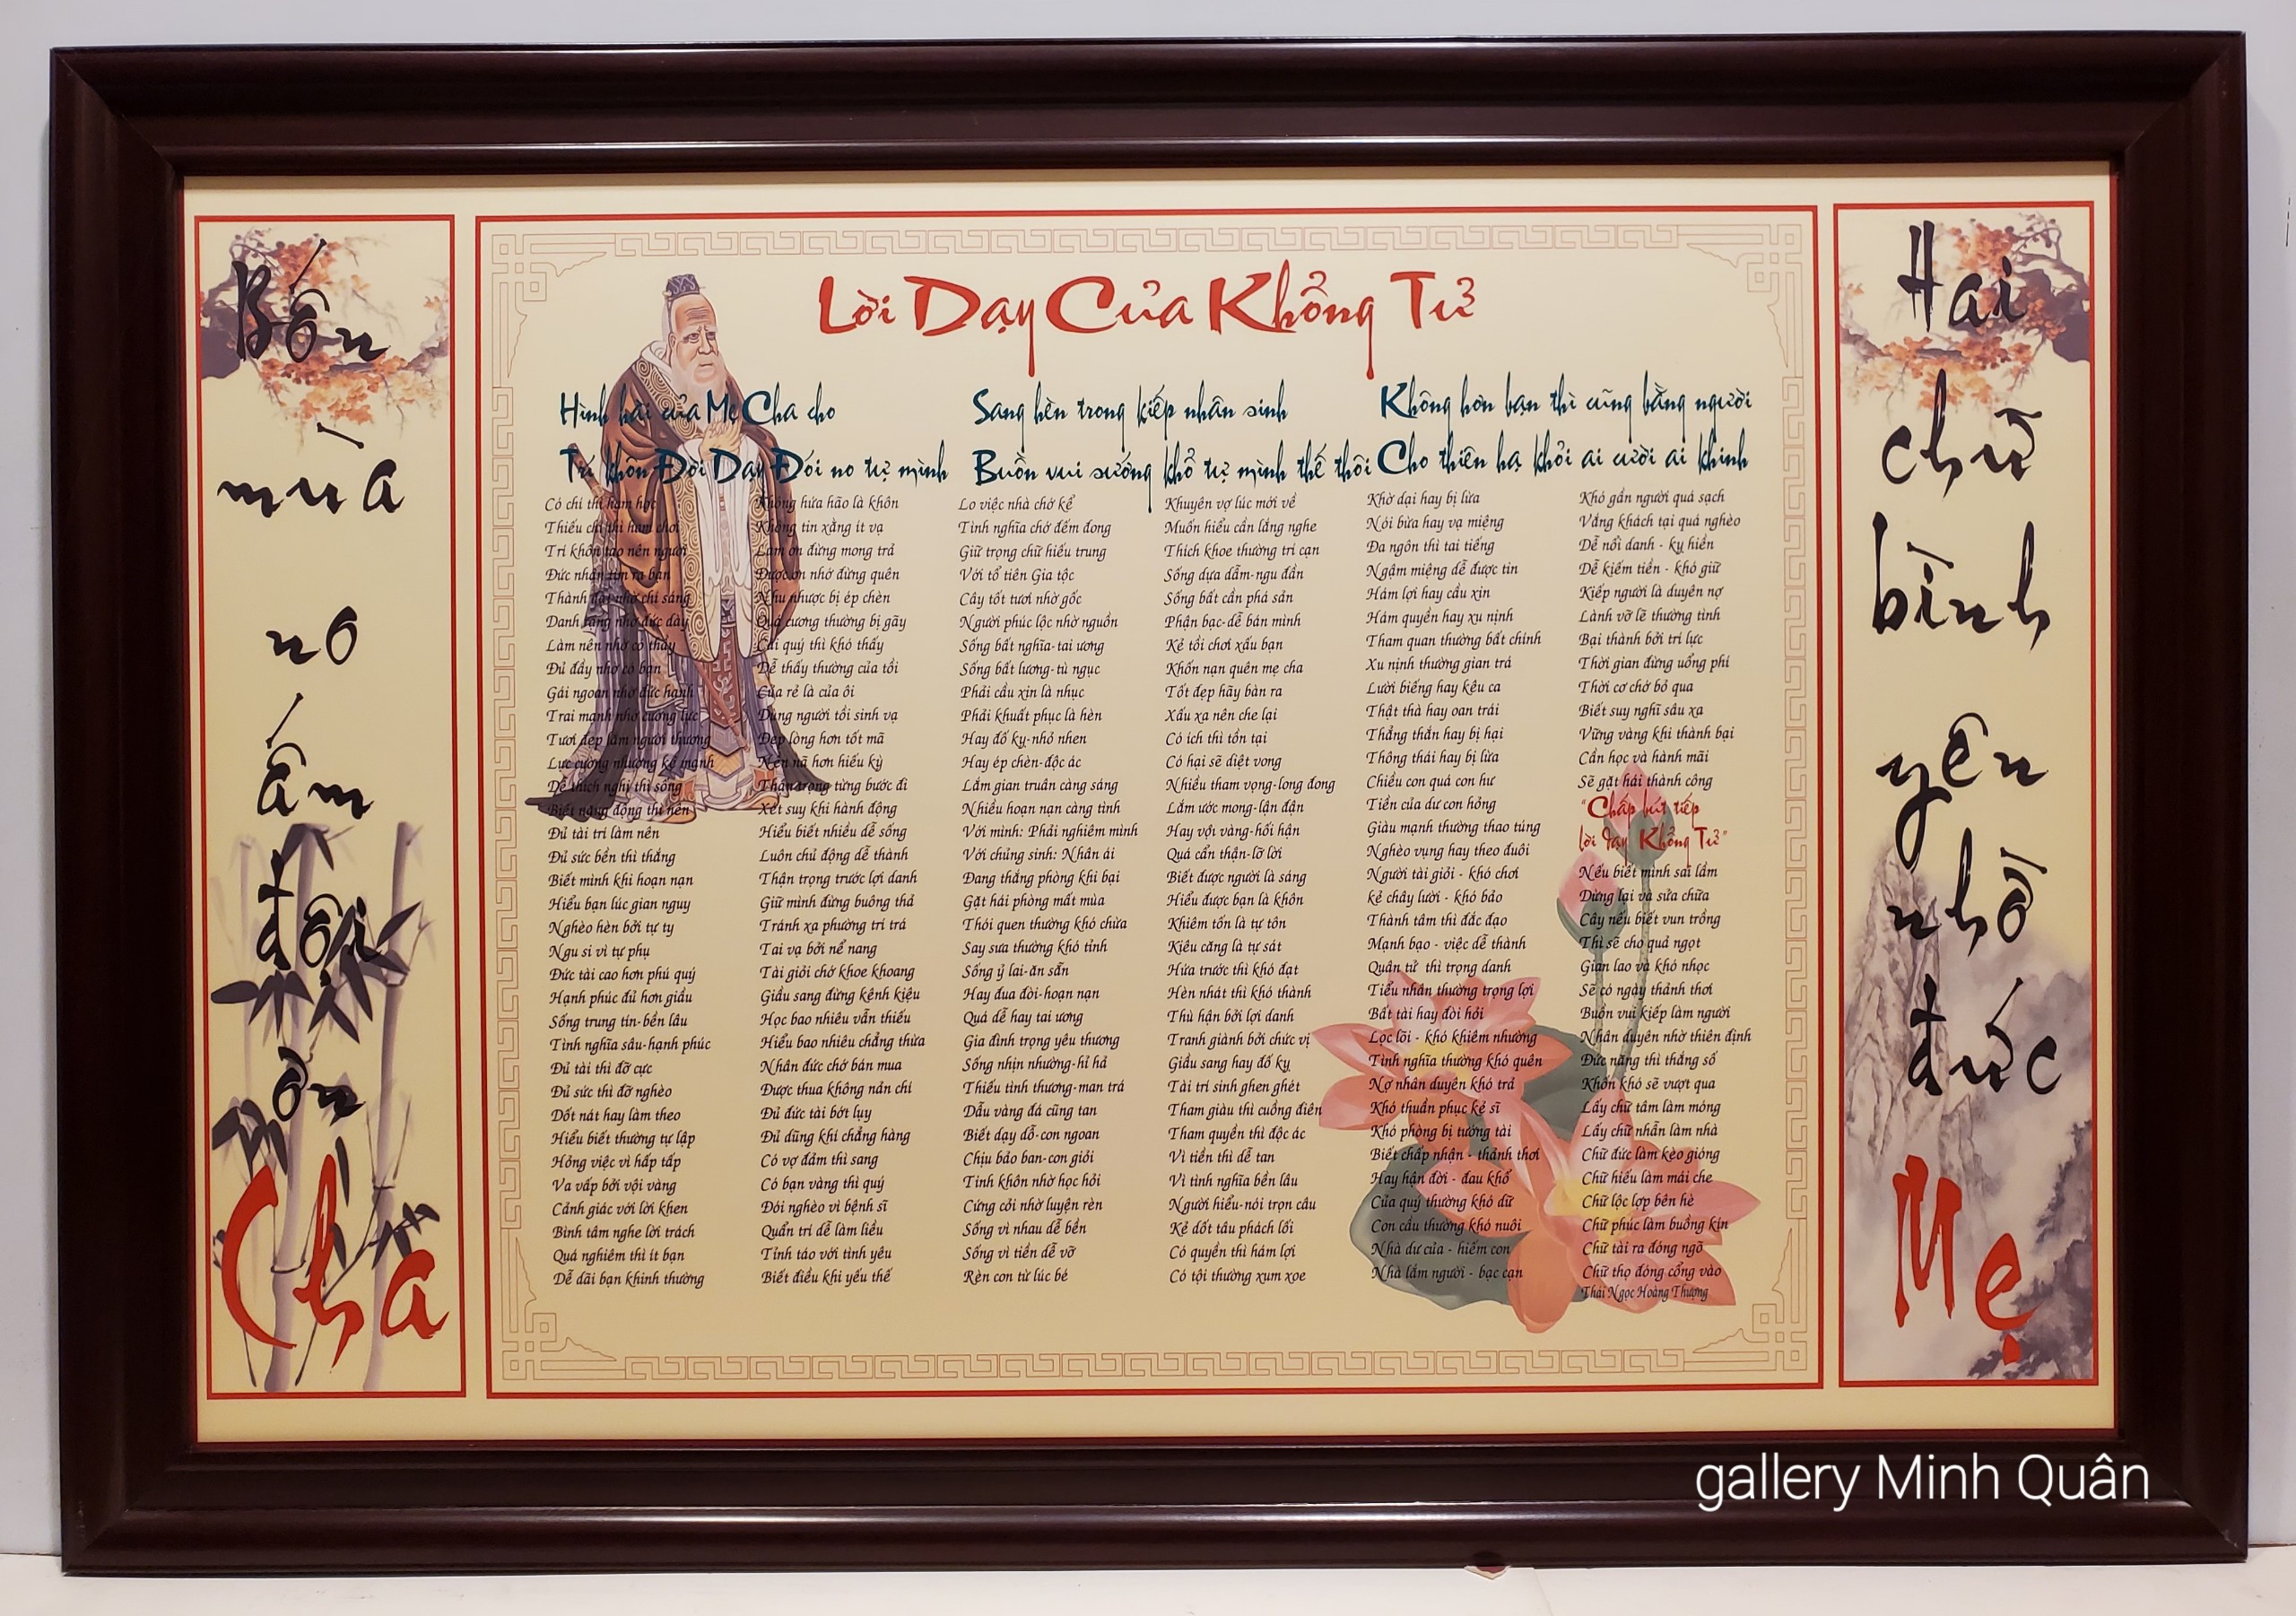 Bốn
mùa
no
ấm
đội
ơn
Cha
Lời Dạy Của Khổng Tử
Hình hài của Mẹ Cha cho
Trí khôn Đời Dạy Đói no tự mình
Sang hèn trong kiếp nhân sinh
Buồn vui sướng khổ tự mình thế thôi
Không hơn bạn thì cũng bằng người
Cho thiên hạ khỏi ai cười ai khinh
Có chí thì ham học
Thiếu chí thì ham chơi
Trí khôn tạo nên người
Đức nhân tìm ra bạn
Thành đạt nhờ chí sáng
Danh rạng nhờ đức dày
Làm nên nhờ có thầy
Đủ đầy nhờ có bạn
Gái ngoan nhờ đức hạnh
Trai mạnh nhờ cường lực
Tươi đẹp lắm người thương
Lực cường nhường kẻ mạnh
Dễ thích nghi thì sống
Biết năng động thì nên
Đủ tài trí làm nên
Đủ sức bền thì thắng
Biết mình khi hoạn nạn
Hiểu bạn lúc gian nguy
Nghèo hèn bởi tự ty
Ngu si vì tự phụ
Đức tài cao hơn phú quý
Hạnh phúc đủ hơn giầu
Sống trung tín-bền lâu
Tình nghĩa sâu-hạnh phúc
Đủ tài thì đỡ cực
Đủ sức thì đỡ nghèo
Dốt nát hay làm theo
Hiểu biết thường tự lập
Hỏng việc vì hấp tấp
Va vấp bởi vội vàng
Cảnh giác với lời khen
Bình tâm nghe lời trách
Quá nghiêm thì ít bạn
Dễ dãi bạn khinh thường
Không hứa hão là khôn
Không tin xằng ít vạ
Làm ơn đừng mong trả
Được ơn nhớ đừng quên
Nhu nhược bị ép chèn
Quá cương thường bị gãy
Cái quý thì khó thấy
Dễ thấy thường của tồi
Của rẻ là của ôi
Dùng người tồi sinh vạ
Đẹp lòng hơn tốt mã
Nền nã hơn hiếu kỳ
Thận trọng từng bước đi
Xét suy khi hành động
Hiểu biết nhiều dễ sống
Luôn chủ động dễ thành
Thận trọng trước lợi danh
Giữ mình đừng buông thả
Tránh xa phường trí trá
Tai vạ bởi nể nang
Tài giỏi chớ khoe khoang
Giầu sang đừng kênh kiệu
Học bao nhiêu vẫn thiếu
Hiểu bao nhiêu chẳng thừa
Nhân đức chớ bán mua
Được thua không nản chí
Đủ đức tài bớt lụy
Đủ dũng khí chẳng hàng
Có vợ đảm thì sang
Có bạn vàng thì quý
Đói nghèo vì bệnh sĩ
Quẫn trí dễ làm liều
Tỉnh táo với tình yêu
Biết điều khi yếu thế
Lo việc nhà chớ kể
Tình nghĩa chớ đếm đong
Giữ trọng chữ hiếu trung
Với tổ tiên Gia tộc
Cây tốt tươi nhờ gốc
Người phúc lộc nhờ nguồn
Sống bất nghĩa-tai ương
Sống bất lương-tù ngục
Phải cầu xin là nhục
Phải khuất phục là hèn
Hay đố kỵ-nhỏ nhen
Hay ép chèn-độc ác
Lắm gian truân càng sáng
Nhiều hoạn nạn càng tinh
Với mình: Phải nghiêm minh
Với chúng sinh: Nhân ái
Đang thắng phòng khi bại
Gặt hái phòng mất mùa
Thói quen thường khó chừa
Say sưa thường khó tỉnh
Sống ỷ lại-ăn sẵn
Hay đua đòi-hoạn nạn
Quá dễ hay tai ương
Gia đình trọng yêu thương
Sống nhịn nhường-hỉ hả
Thiếu tình thương-man trá
Dẫu vàng đá cũng tan
Biết dạy dỗ-con ngoan
Chịu bảo ban-con giỏi
Tinh khôn nhờ học hỏi
Cứng cỏi nhờ luyện rèn
Sống vì nhau dễ bền
Sống vì tiền dễ vỡ
Rèn con từ lúc bé
Khuyên vợ lúc mới về
Muốn hiểu cần lắng nghe
Thích khoe thường trí cạn
Sống dựa dẫm-ngu đần
Sống bất cần phá sản
Phận bạc-dễ bán mình
Kẻ tồi chơi xấu bạn
Khốn nạn quên mẹ cha
Tốt đẹp hãy bàn ra
Xấu xa nên che lại
Có ích thì tồn tại
Có hại sẽ diệt vong
Nhiều tham vọng-long đong
Lắm ước mong-lận đận
Hay vội vàng-hối hận
Quá cẩn thận-lỡ lời
Biết được người là sáng
Hiểu được bạn là khôn
Khiêm tốn là tự tôn
Kiêu căng là tự sát
Hứa trước thì khó đạt
Hèn nhát thì khó thành
Thù hận bởi lợi danh
Tranh giành bởi chức vị
Giầu sang hay đố kỵ
Tài trí sinh ghen ghét
Tham giàu thì cuồng điên
Tham quyền thì độc ác
Vì tiền thì dễ tan
Vì tình nghĩa bền lâu
Người hiểu-nói trọn câu
Kẻ dốt tâu phách lối
Có quyền thì hám lợi
Có tội thường xum xoe
Khờ dại hay bị lừa
Nói bừa hay vạ miệng
Đa ngôn thì tai tiếng
Ngậm miệng dễ được tin
Hám lợi hay cầu xin
Hám quyền hay xu nịnh
Tham quan thường bất chính
Xu nịnh thường gian trá
Lười biếng hay kêu ca
Thật thà hay oan trái
Thẳng thắn hay bị hại
Thông thái hay bị lừa
Chiều con quá con hư
Tiền của dư con hỏng
Giàu mạnh thường thao túng
Nghèo vụng hay theo đuôi
Người tài giỏi - khó chơi
kẻ chây lười - khó bảo
Thành tâm thì đắc đạo
Mạnh bạo - việc dễ thành
Quân tử thì trọng danh
Tiểu nhân thường trọng lợi
Bất tài hay đòi hỏi
Lọc lõi - khó khiêm nhường
Tình nghĩa thường khó quên
Nợ nhân duyên khó trả
Khó thuần phục kẻ sĩ
Khó phòng bị tướng tài
Biết chấp nhận - thảnh thơi
Hay hận đời - đau khổ
Của quý thường khó dữ
Con cầu thường khó nuôi
Nhà dư của - hiếm con
Nhà lắm người - bạc cạn
Khó gần người quá sạch
Vắng khách tại quá nghèo
Dễ nổi danh - kỵ hiền
Dễ kiếm tiền - khó giữ
Kiếp người là duyên nợ
Lành vỡ lẽ thường tình
Bại thành bởi trí lực
Thời gian đừng uổng phí
Thời cơ chớ bỏ qua
Biết suy nghĩ sâu xa
Vững vàng khi thành bại
Cần học và hành mãi
Sẽ gặt hái thành công
"Chấp bút tiếp
lời dạy Khổng Tử"
Nếu biết mình sai lầm
Dừng lại và sửa chữa
Cây nếu biết vun trồng
Thì sẽ cho quả ngọt
Gian lao và khó nhọc
Sẽ có ngày thảnh thơi
Buồn vui kiếp làm người
Nhân duyên nhờ thiên định
Đức năng thì thắng số
Khốn khó sẽ vượt qua
Lấy chữ tâm làm móng
Lấy chữ nhẫn làm nhà
Chữ đức làm kèo gióng
Chữ hiếu làm mái che
Chữ lộc lợp bên hè
Chữ phúc làm buồng kín
Chữ tài ra đóng ngõ
Chữ thọ đóng cổng vào
Thái Ngọc Hoàng Thượng
Hai
chữ
bình
yên
nhờ
đức
Mẹ
gallery Minh Quân